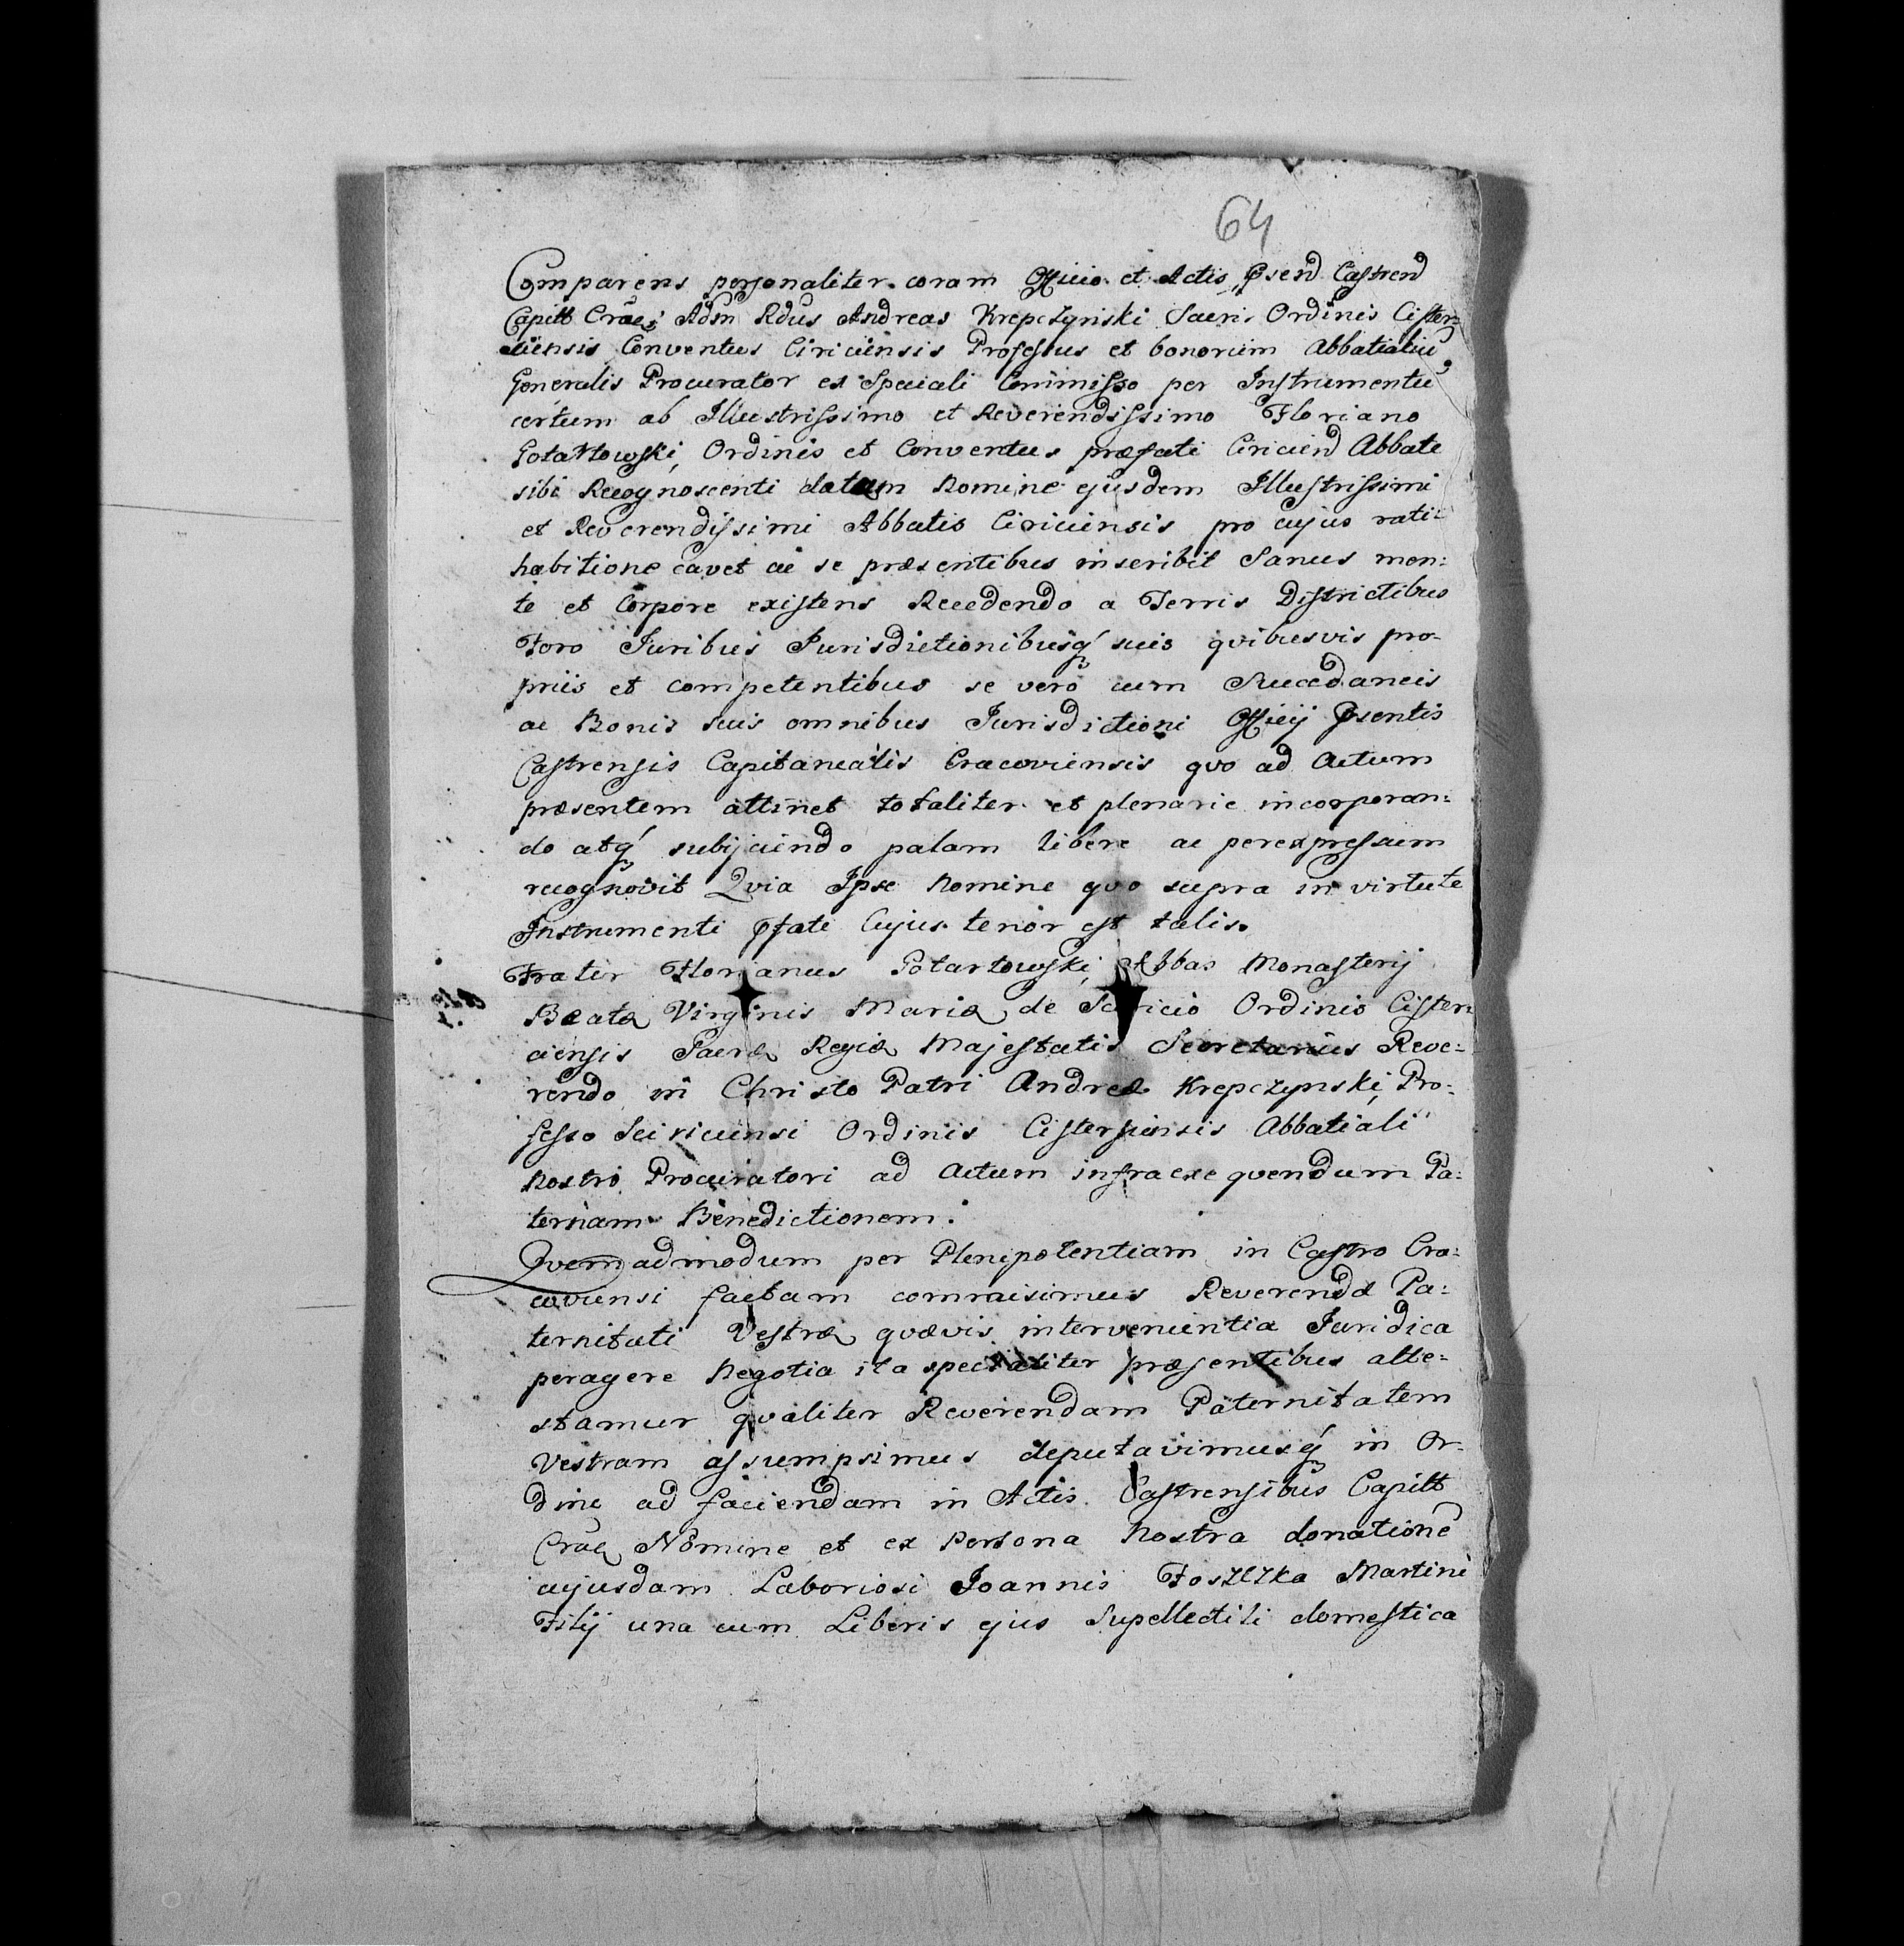 64
Comparens personaliter coram Officio et Actis Psend Castrend
Capitt Crae: Adm Rdus Andreas Krepczynski Sacri Ordinis Cister=
ciensis Conventus Ciriciensis Professus et bonorum Abbatialiū
Generalis Procurator ex Speciali Commisso per Instrumentū
certum ab Illustrissimo et Reverendissimo Floriano
Gotartowski, Ordinis et Conventus præfati Ciriciend Abbate
sibi Recognoscenti datum Nomine ejusdem Illustrissimi
et Reverendissimi Abbatis Ciriciensis pro cujus rati=
habitione cavet ac se præsentibus inscribit Sanus men=
te et Corpore existens Recedendo a Terris Districtibus
Foro Juribus Jurisdictionibusq suis qvibusvis pro-
priis et competentibus se vero cum Succedaneis
ac Bonis suis omnibus Jurisdictioni Officij Psentis
Castrensis Capitanealis Cracoviensis qvo ad Actum
præsentem attinet totaliter et plenarie incorporan=
do atq subijciendo palam libere ac per expressum
recognovit Qvia Ipse Nomine qvo supra in virtute
Instrumenti Pfati Cujus tenor est talis.
Frater Florianus Gotartowski, Abbas Monasterij
Beatæ Virginis Mariæ de Sciricio Ordinis Cister
ciensis Sacræ Regiæ Majestatis Secretarius Reve=
rendo in Christo Patri Andreæ Krepczynski, Pro=
fesso Sciriciensi Ordinis Cisterciensis Abbatiali
Nostro Procuratori ad Actum infra exeqvendum Pa=
ternam Benedictionem.
Qvemadmodum per Plenipotentiam in Castro Cra=
coviensi factam commisimus Reverendæ Pa=
ternitati Vestræ qvævis intervenientia Juridica
peragere Negotia ita specialiter præsentibus atte=
stamur qvaliter Reverendam Paternitatem
Vestram assumpsimus deputavimusq in Or=
dine ad faciendam in Actis Castrensibus Capitt
Crae Nomine et ex Persona Nostra donationē
cujusdam Laboriosi Joannis Foszczka Martini
Filij una cum Liberis ejus Supellectili domestica